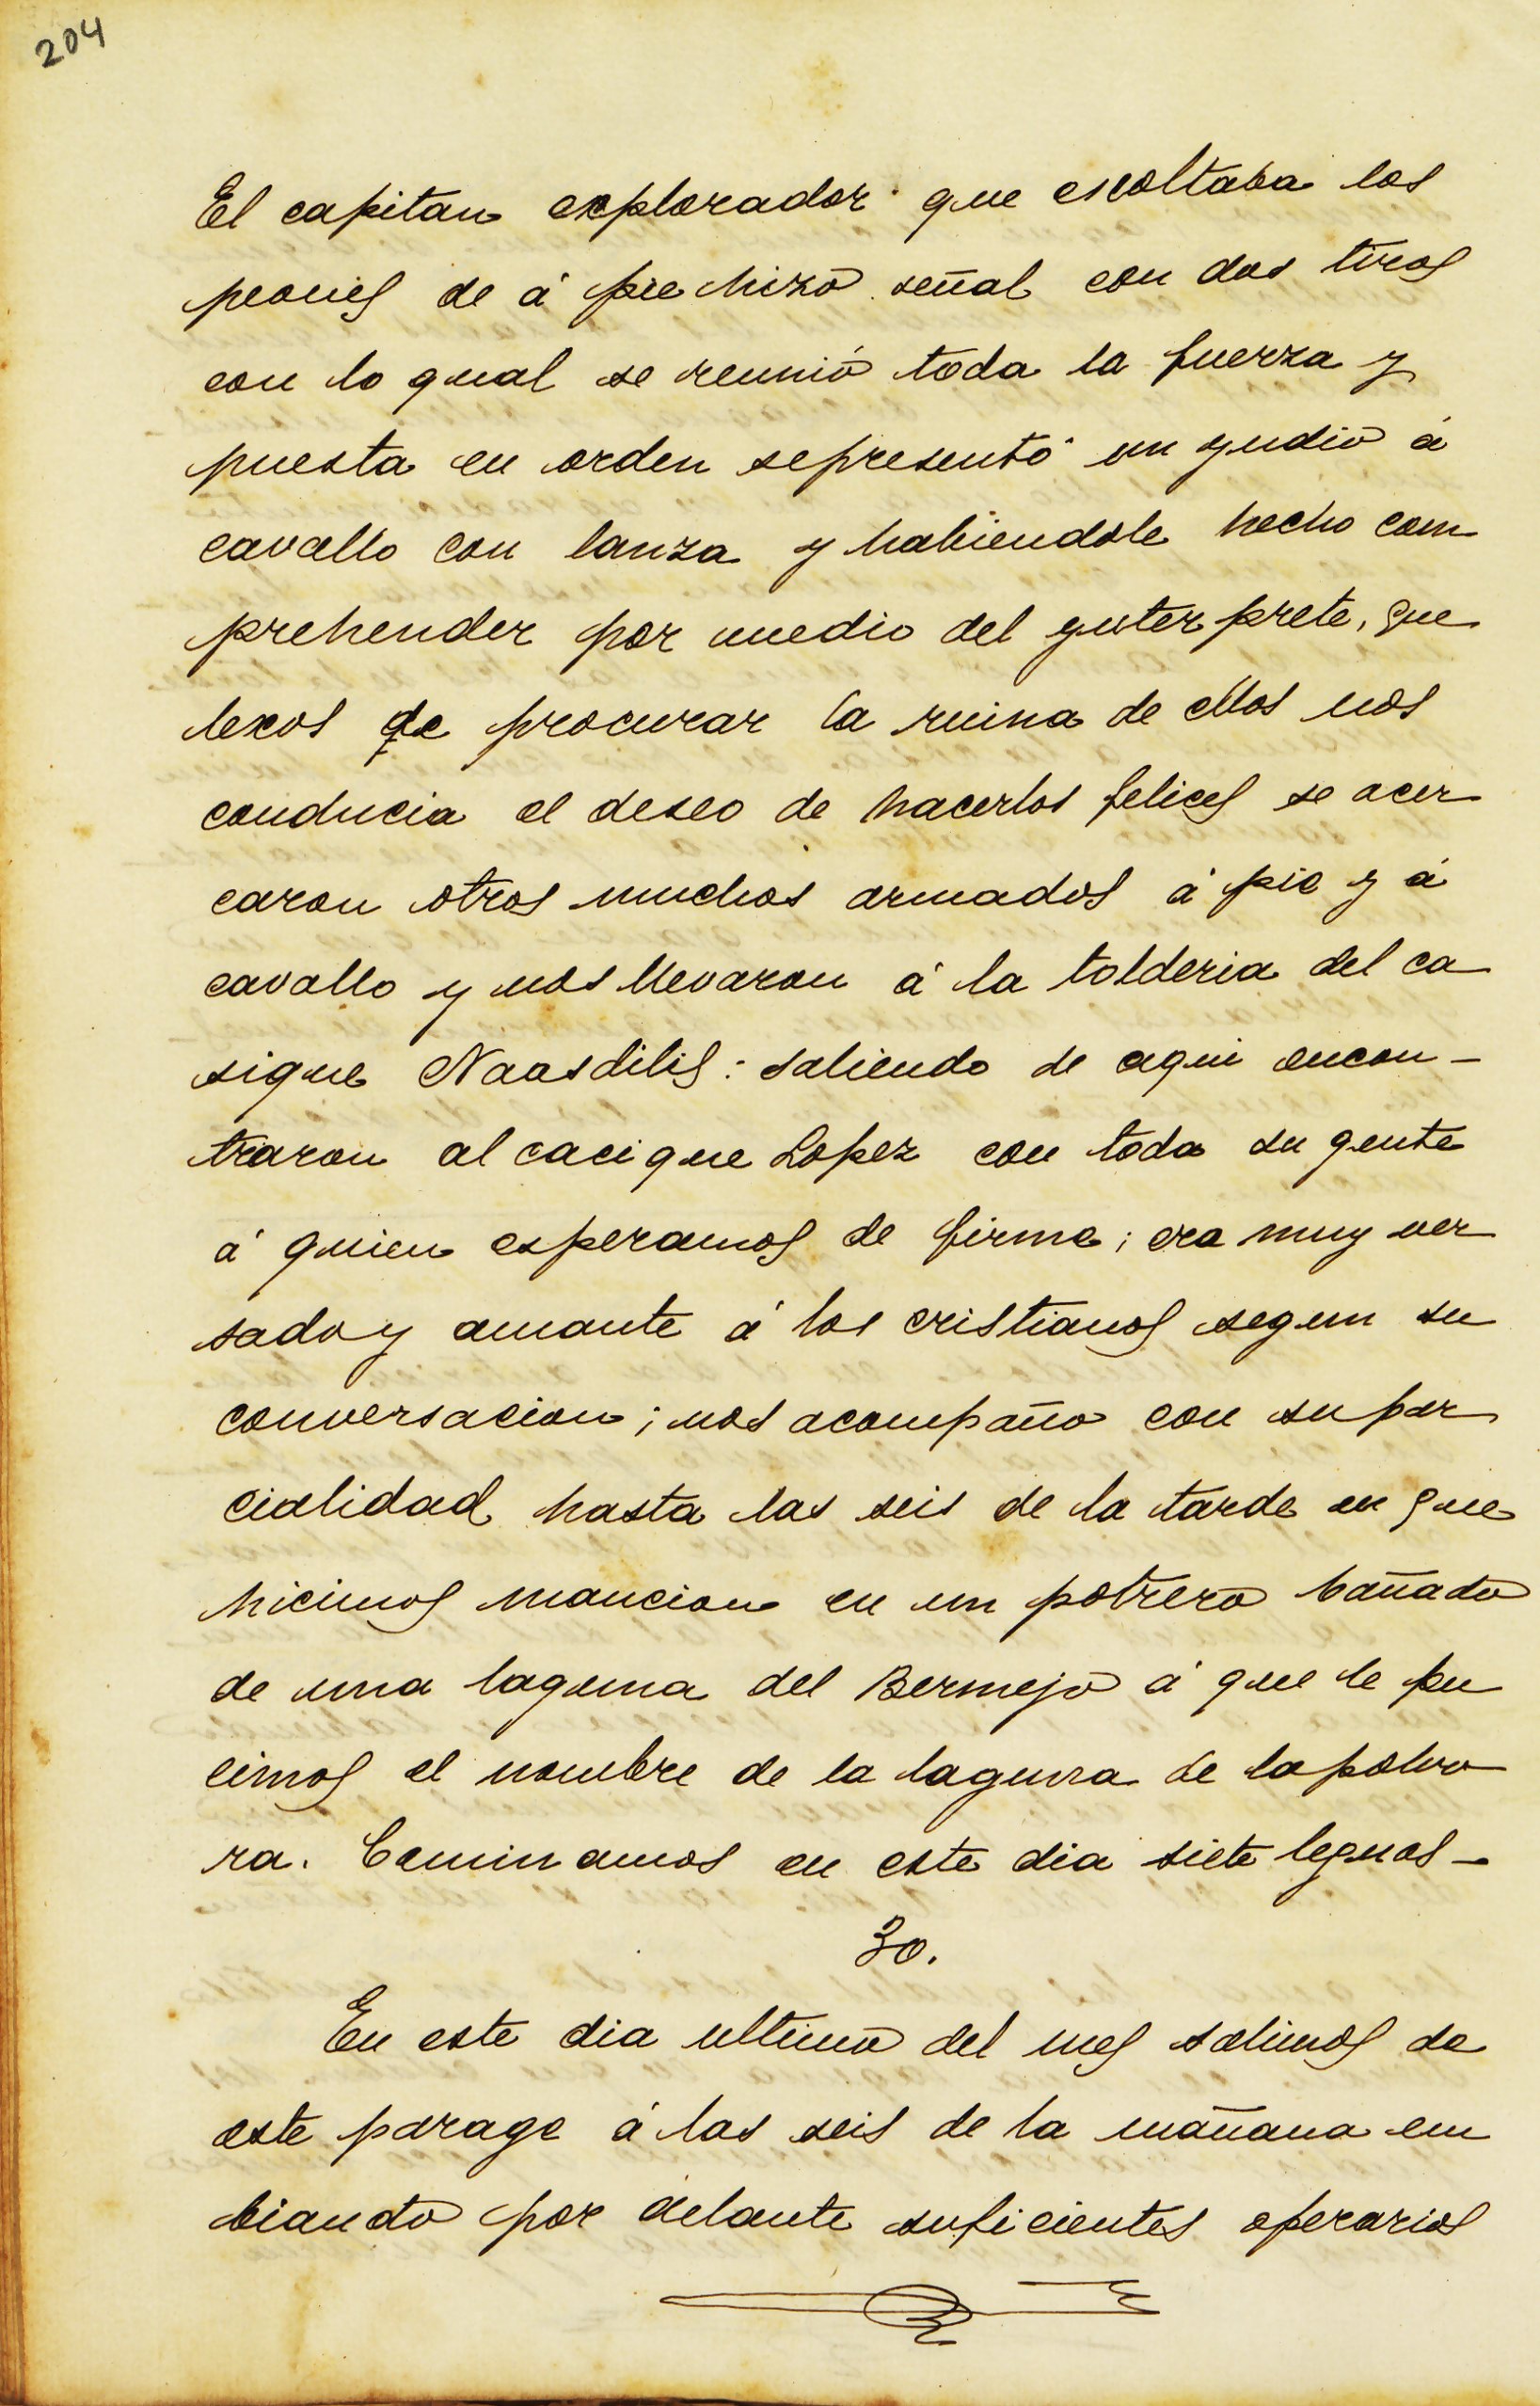 204
El capitan explorador que escoltaba los
peones de á pie hizo señal con dos tiros
con lo qual se reunió toda la fuerza y
puesta en orden se presentó un yndio á
cavallo con lanza y habiendole hecho com
prehender por medio del ynterprete, que
lexos de procurar la ruina de ellos nos
conducia el deseo de hacerlos felices se acer
caron otros muchos armados á pie y á
cavallo y nos llevaron á la tolderia del ca
sique Naasdilis: saliendo de aqui encon-
traron al cacique Lopez con toda su gente
á quien esperamos de firme; era muy ver
sado y amante á los cristianos segun su
conversacion; nos acompaño con su par
cialidad hasta las seis de la tarde en que
hicimos mancion en un potrero bañado
de una laguna del Bermejo á que le pu
cimos el nombre de la laguna de la polvo
ra. Caminamos en este dia siete leguas-
30.
En este dia ultimo del mes salimos de
este parage á las seis de la mañana em
biando por delante suficientes operarios